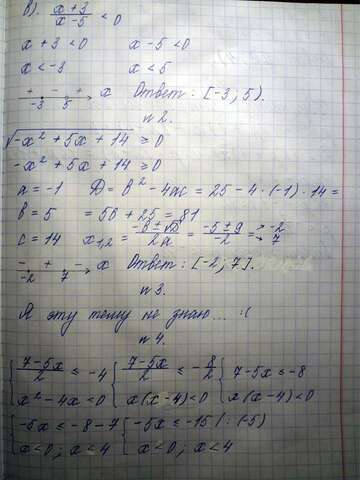 в) (x+3)/(x-5) < 0
x + 3 < 0 x - 5 < 0
x < -3 x < 5
+ - + x Ответ: [-3; 5).
-3 5
n 2.
√(-x² + 5x + 14) ≥ 0
-x² + 5x + 14 ≥ 0
a = -1 D = b² - 4ac = 25 - 4·(-1)·14 =
b = 5 = 56 + 25 = 81
c = 14 x₁,₂ = (-b ± √D)/(2a) = (-5 ± 9)/(-2) = → -2 → 7
- + - x Ответ: [-2; 7].
-2 7
n 3.
Я эту тему не знаю... :(
n 4.
{ (7-5x)/2 ≤ -4 { (7-5x)/2 ≤ -8/2 { 7-5x ≤ -8
x² - 4x < 0 x(x-4) < 0 x(x-4) < 0
{ -5x ≤ -8 - 7 { -5x ≤ -15 | : (-5)
x < 0; x < 4 x < 0; x < 4